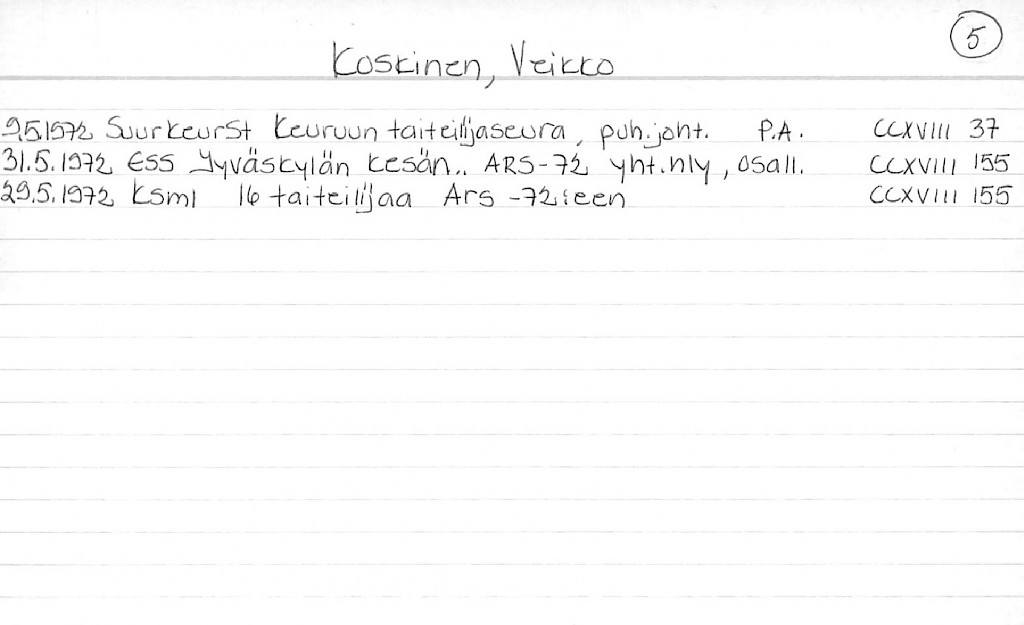 5
Koskinen, Veikko
9.5.1972 SuurkeurSt Keuruun taiteilijaseura, puh.joht. P.A. CCXVIII 37
31.5.1972 ESS Jyväskylän kesän.. ARS-72 yht.nly, osall. CCXVIII 155
29.5.1972 Ksml 16 taiteilijaa Ars -72:een CCXVIII 155